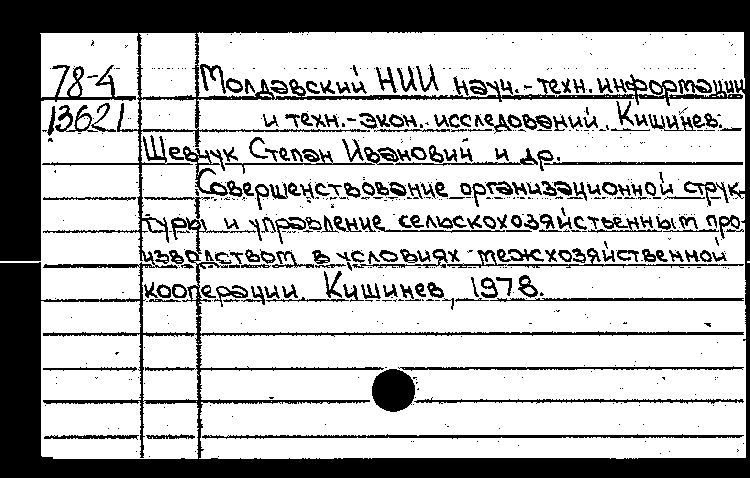 78-4 Молдавский НИИ науч.-техн. информации
13621 и техн.-экон. исследований. Кишинев.
Шевчук, Степан Иванович и др.
Совершенствование организационной струк-
туры и управление сельскохозяйственным про-
изводством в условиях межхозяйственной
кооперации. Кишинев, 1978.